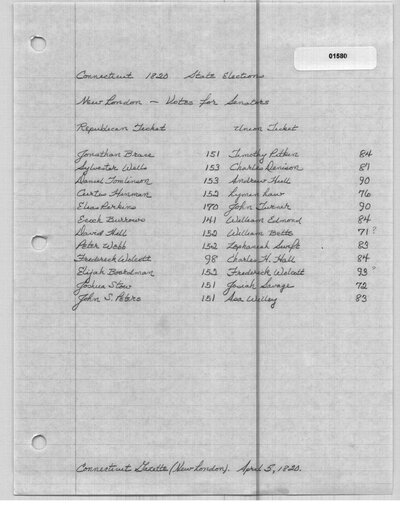 01580
Connecticut 1820 State Elections
New London - Votes for Senators
Republican Ticket Union Ticket
Jonathan Brace 151 Timothy Pitkin 84
Sylvester Wells 153 Charles Denison 87
Daniel Tomlinson 153 Andrew Hull 90
Curtus Hinman 152 Lyman Law 76
Elias Perkins 170 John Turner 90
Enoch Burrows 141 William Edmond 84
David Hill 152 William Botts 71?
Peter Webb 152 Zephaniah Swift 83
Frederick Wolcott 98 Charles H. Hall 84
Elijah Boardman 152 Frederick Wolcott 93?
Joshua Stow 151 Josiah Savage 72
John S. Peters 151 Asa Willey 83
Connecticut Gazette (New London). April 5, 1820.